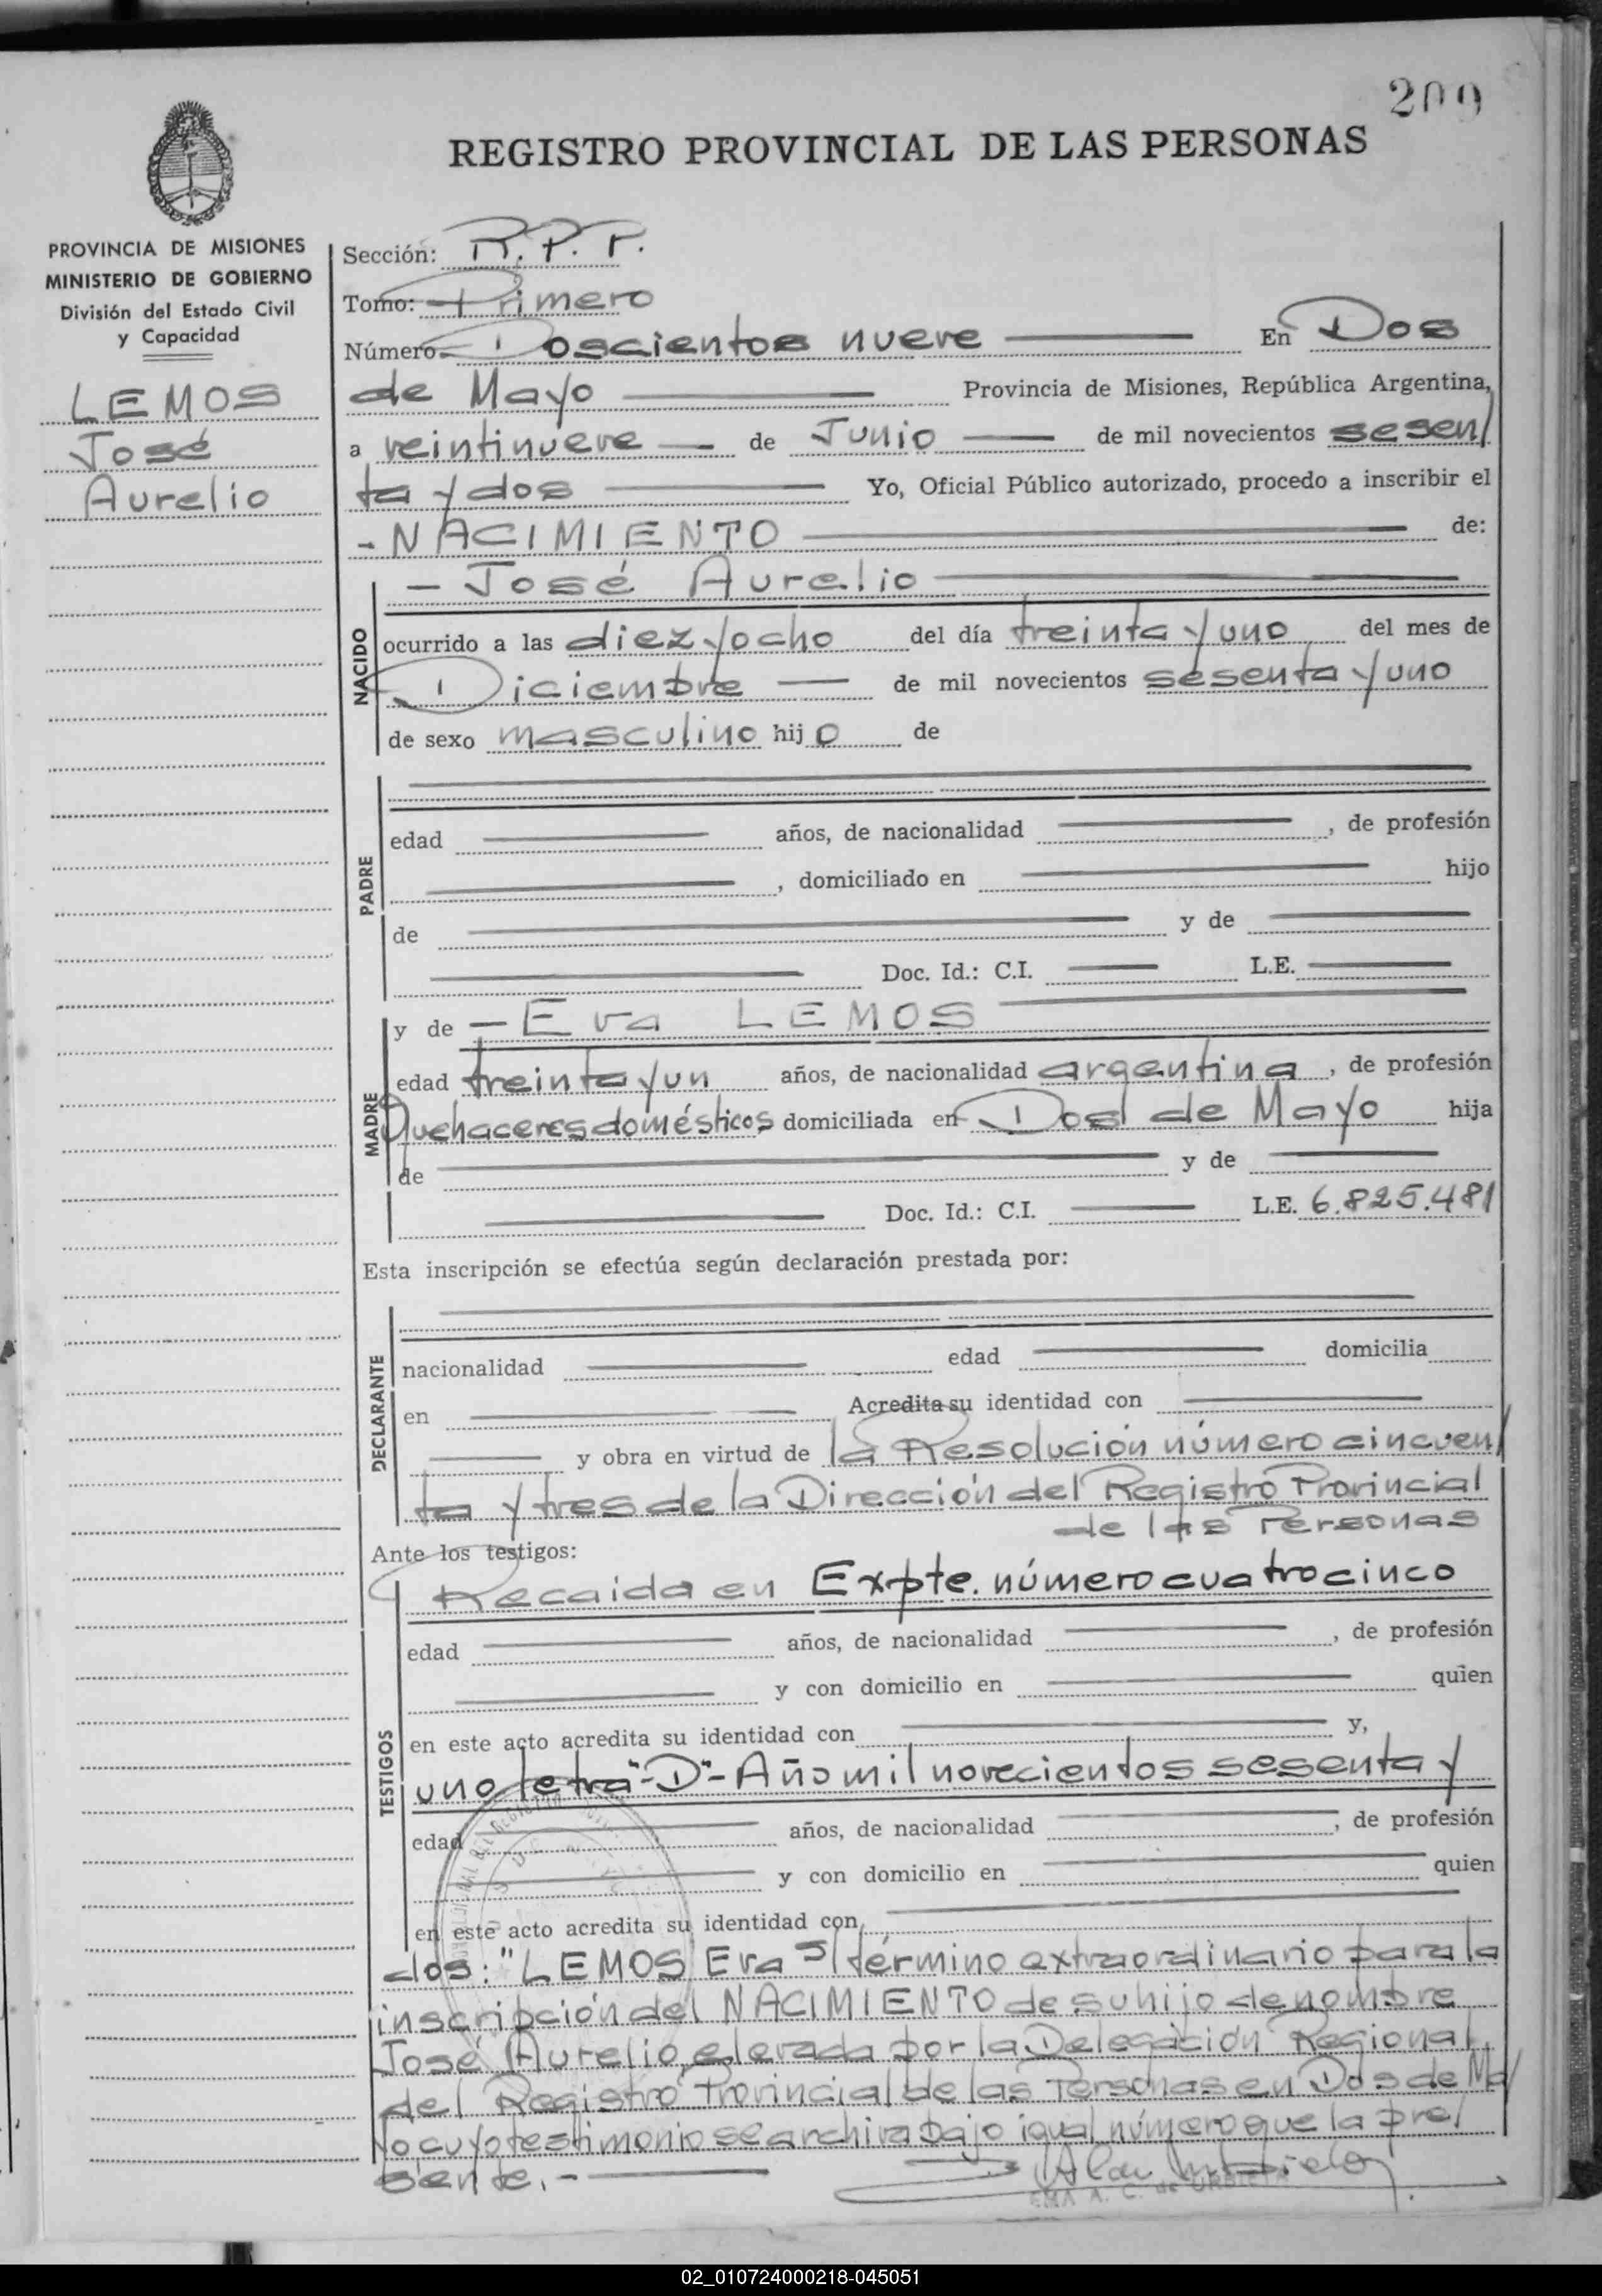 209
REGISTRO PROVINCIAL DE LAS PERSONAS
PROVINCIA DE MISIONES
MINISTERIO DE GOBIERNO
División del Estado Civil
y Capacidad
LEMOS
José
Aurelio
Sección: R.P.P.
Tomo: Primero
Número Doscientos nueve En Dos
de Mayo Provincia de Misiones, República Argentina,
a veintinueve de Junio de mil novecientos sesen/
ta y dos Yo, Oficial Público autorizado, procedo a inscribir el
- NACIMIENTO de:
- José Aurelio
NACIDO
ocurrido a las diez y ocho del día treinta y uno del mes de
Diciembre de mil novecientos sesenta y uno
de sexo masculino hijo de
PADRE
edad años, de nacionalidad , de profesión
, domiciliado en hijo
de y de
Doc. Id.: C.I. L.E.
MADRE
y de - Eva LEMOS
edad treinta y un años, de nacionalidad argentina, de profesión
Quehaceres domésticos domiciliada en Dos de Mayo hija
de y de
Doc. Id.: C.I. L.E. 6.825.481
Esta inscripción se efectúa según declaración prestada por:
DECLARANTE
nacionalidad edad domicilia
en Acredita su identidad con
y obra en virtud de la Resolución número cincuen/
ta y tres de la Dirección del Registro Provincial
de las Personas
Ante los testigos:
TESTIGOS
Recaida en Expte. número cuatro cinco
edad años, de nacionalidad , de profesión
y con domicilio en quien
en este acto acredita su identidad con y,
uno letra "-D"- Año mil novecientos sesenta y
edad años, de nacionalidad , de profesión
y con domicilio en quien
en este acto acredita su identidad con
dos: "LEMOS Eva S/ término extraordinario para la
inscripción del NACIMIENTO de su hijo de nombre
José Aurelio, elevada por la Delegación Regional
del Registro Provincial de las Personas en Dos de Ma/
yo cuyo testimonio se archiva bajo igual número que la pre/
sente.-
EMA A. C. de URBIETA
02_010724000218-045051